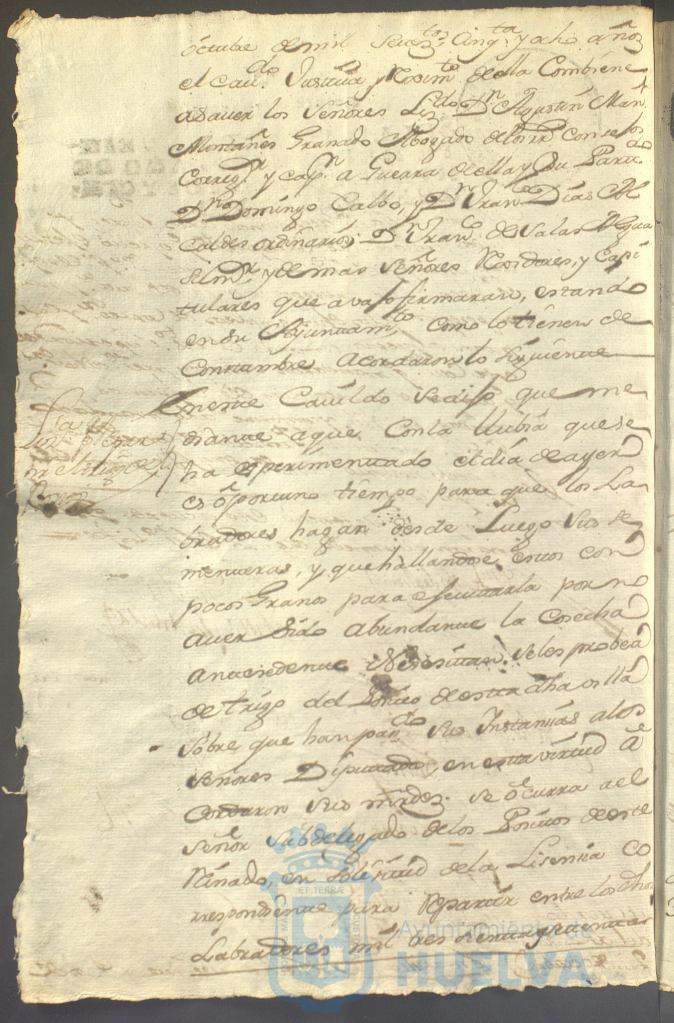 octubre de mil Setez.tos Cinq.ta y ocho años
el Cav.do Justicia y Rexim.to de ella Combiene
asaver los Señores Lz.do D.n Agustin Man.l
Montañes Granado Abogado de los R.s Consejos
Correg.r y cap.n a Guerra de ella y su Partido
D.n Domingo Calbo, y D.n Fran.co Dias Al
Caldes ordinarios; D.n Fran.co de Salas Algua
sil m.r y demas Señores Rexidores, y Capi
tulares que avajo firmaran, estando
en su Ajuntam.to como lo tienen de
Constumbre acordaron lo siguiente
En este Cavildo se dijo que me
diante a que con la llubia que se
ha esperimentado el dia de ayer
es oportuno tiempo para que los La
bradores hagan desde luego sus se
menteras, y que hallandose estos con
pocos Granos para efectuarla por no
aver sido abundante la Cosecha
antesedente Nesesitan se les probea
de trigo del Posito de esta dha villa
sobre que han pas.do sus Instansias a los
señores Diputados, en esta virtud a
Cordaron sus m.rdez se ocurra a el
Señor Subdelegado de los Positos de este
Reinado, en solisitud de la Lisensia co
rrespondiente para repartir entre los dhos
Labradores mil tres sientas
Ayuntamiento de
HUELVA